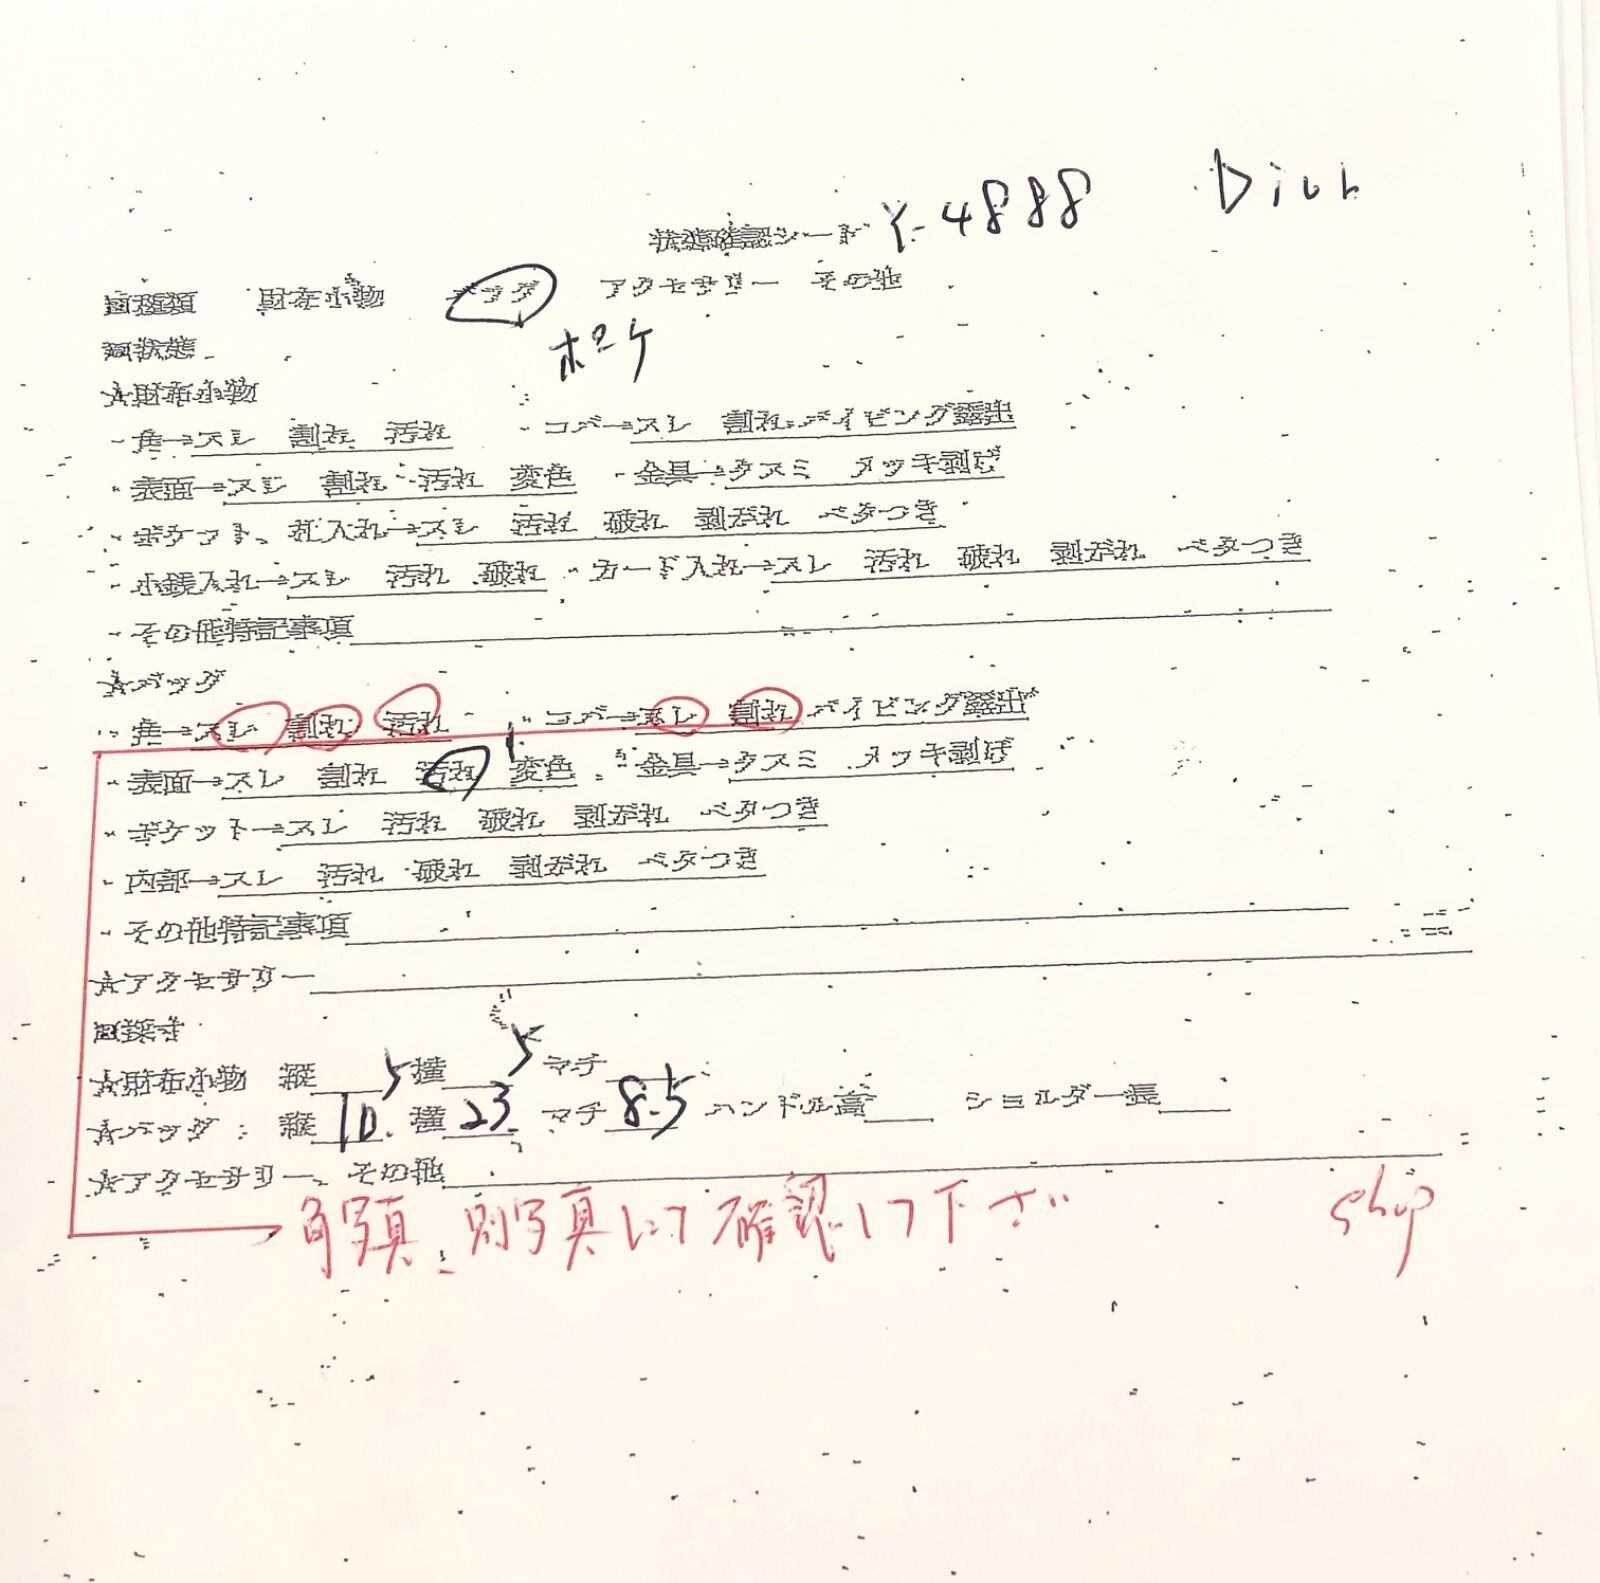 状態確認シート Y-4888 Dior
□種類 財布小物 バッグ アクセサリー その他
□状態
☆財布小物
・角→スレ 割れ 汚れ ・コバ→スレ 割れ パイピング露出
・表面→スレ 割れ 汚れ 変色 ・金具→クスミ メッキ剥げ
・ポケット、札入れ→スレ 汚れ 破れ 剥がれ ベタつき
・小銭入れ→スレ 汚れ 破れ ・カード入れ→スレ 汚れ 破れ 剥がれ ベタつき
・その他特記事項
☆バッグ
・角→スレ 割れ 汚れ ・コバ→スレ 割れ パイピング露出
・表面→スレ 割れ 汚れ 変色 ・金具→クスミ メッキ剥げ
・ポケット→スレ 汚れ 破れ 剥がれ ベタつき
・内部→スレ 汚れ 破れ 剥がれ ベタつき
・その他特記事項
☆アクセサリー
□採寸
☆財布小物 縦 横 マチ
☆バッグ : 縦 10.5 横 23.5 マチ 8.5 ハンドル高 ショルダー長
☆アクセサリー、その他
角写真、別写真にて確認して下さい